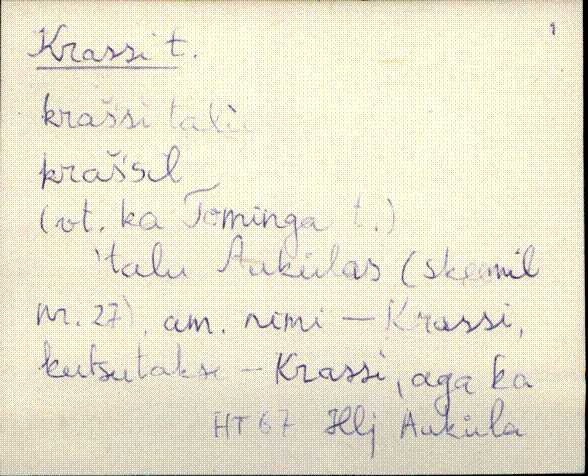 1
Krassi t.
krašsi talu
krašsil
(vt. ka Tominga t.)
talu Aukülas (skeemil
nr. 27), am. nimi – Krassi,
kutsutakse – Krassi, aga ka
HT 67 Hlj Auküla